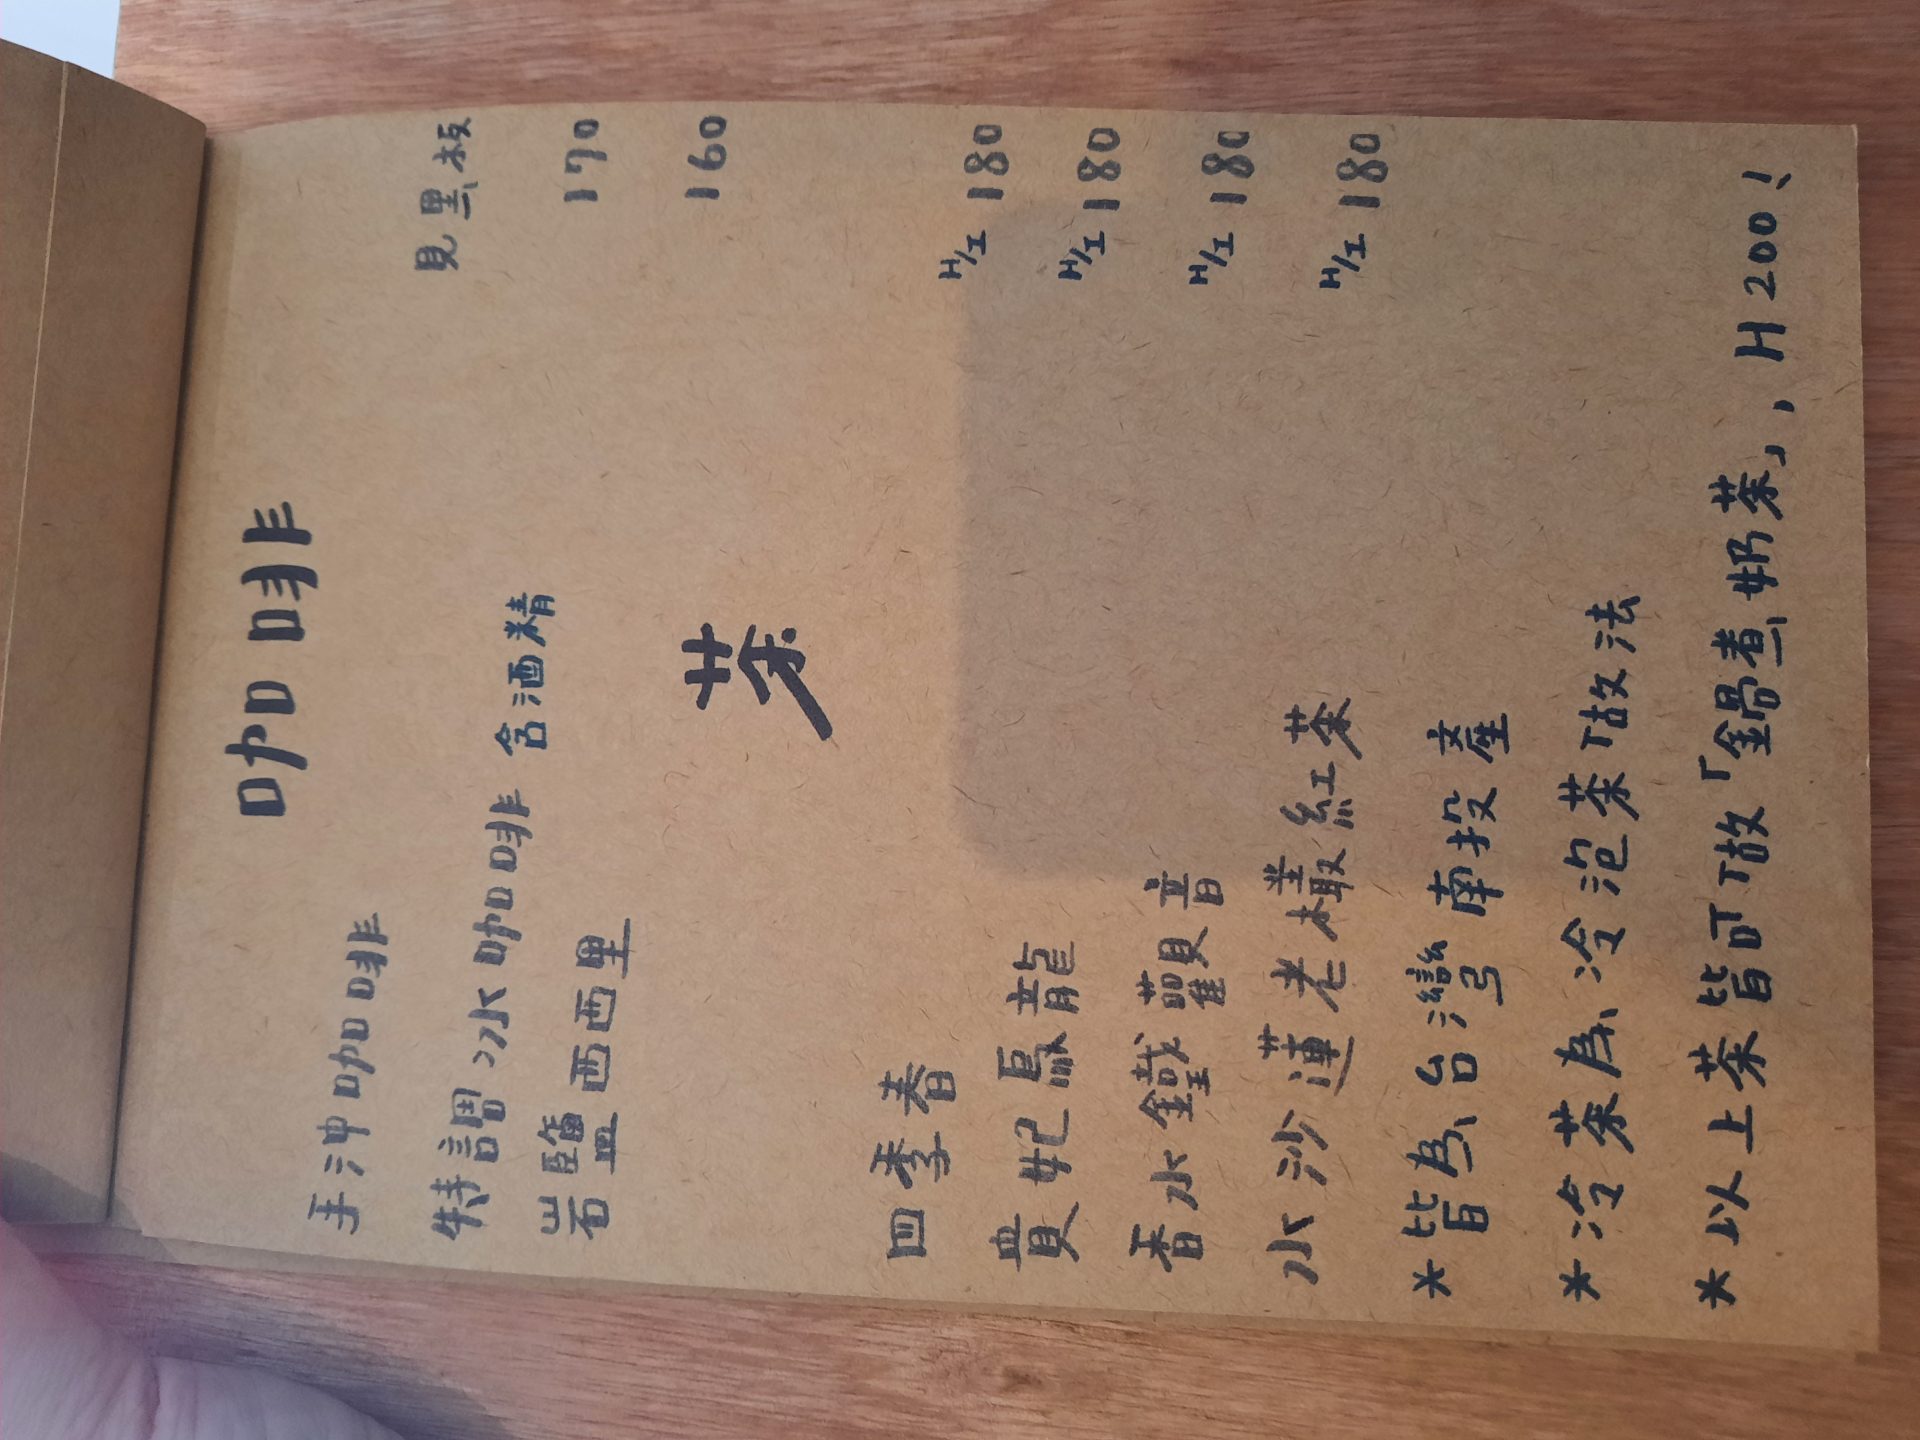 咖啡
手沖咖啡 見黑板
特調冰咖啡 含酒精 170
岩鹽西西里 160
茶
四季春 H/I 180
貴妃烏龍 H/I 180
香水鐵觀音 H/I 180
水沙蓮老欉紅茶 H/I 180
*皆為台灣南投產
*冷茶為冷泡茶做法
*以上茶皆可做「鍋煮奶茶」, H 200!